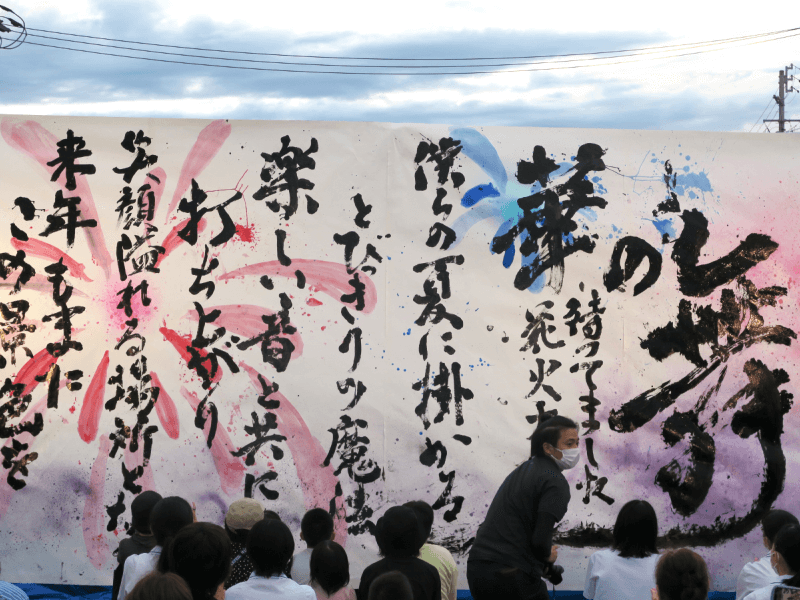 夢の
華
待ってました
花火大
僕らの夏に掛かる
とびっきりの魔法
楽しい音と共に
打ち上がり
笑顔溢れる場所とな
来年もまた
この景色を